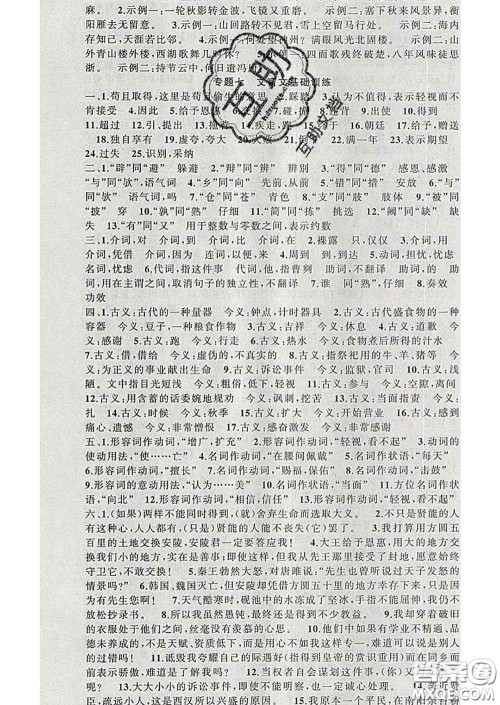 麻。 2.示例一:一轮秋影转金波,飞镜又重磨。 示例二:塞下秋来风景异,衡
阳雁去无留意。 3.示例一:山回路转不见君,雪上空留马行处。 示例二:海内
存知己,天涯若比邻。 4.示例一:何处望神州? 满眼风光北固楼。 示例二:山
外青山楼外楼,西湖歌舞几时休? 示例三:四面歌残终破楚,八年风味徒思
浙。 示例二:持节云中,何日遣冯
基础训练
一、1.苟且取得,这里是苟且偷生的意思 2.踩踏 3.认为不值得,表示轻视而不
肯接受 4.因此 5.给予恩惠
11.超过 12.引,提出 疾走,跑 16.到 17.朝廷
18.独自享有 22.满一年 23.表示期望
24.过失 25.识别,采纳
二、1.“辟”同“避” 躲避 2.“辩”同“辨” 辨别 3.“得”同“德” 感恩,感激
“与”同“欤”,语气词 4.“乡”同“向” 先前,从前 5.“错”同“措” 安放 6.“与”
同“欤” 语气词,吗 7.“支”同“肢” 肢体 8.“衡”同“横” 梗塞,不顺 9.“被”同
“披” 穿 10.“孰”同“熟” 仔细 11.“简”同“拣” 挑选 12.“阙”同“缺” 缺
失 13.“有”同“又” 用于整数与零数之间,表示约数
三、1.介词,对 介词,向 介词,对于 介词,比 介词,在 2.裸露 只,仅仅 3.介词,用
介词,凭借 介词,因为 介词,把 连词,来 4.周到 到,到达 5.动词,担忧,忧虑
名词,忧虑 6.代词,这件事 代词,他,指曹刿 助词,不翻译 助词,的 助词,不翻译 助
词,用在主谓之间,取消句子的独立性,不翻译 7.谁 同“熟”,仔细 8.奏效
功效
四、1.古义:古代的一种量器 今义:钟点,计时器具 2.古义:古代盛食物的一种
容器 今义:豆子,一种粮食作物 3.古义:吉祥 今义:休息 4.古义:道歉 今
义:感谢 5.古义:跑 今义:行走 6.古义:热水 今义:食物煮后所得的汁水
7.古义:借,借给 今义:虚伪的,不真实的 8.古义:指祭祀用的牛、羊、猪等 今
义:为正义的事业献出生命 9.古义:诉讼事件 今义:监狱,官司 10.古义:浅
陋。文中指目光短浅 今义:粗俗,低下,轻视 11.古义:参与 今义:空隙,离间
12.古义:用含蓄的话委婉地规劝 今义:讽刺 13.古义:当面指责 今义:
扎 14.古义:时候 今义:秋季 15.古义:扩大 今义:开始营业 16.古义:感到
痛心,遗憾 今义:非常憎恨 17.古义:感奋激发 今义:非常感谢
五、1.形容词作动词,“增广,扩充” 2.形容词作动词,“轻视,看不起” 3.动词的
使动用法,“使……亡” 4.名词作动词,“在腰间佩戴” 5.名词作状语,“每天”
6.形容词作动词,“擅长” 7.名词作动词,“赐福,保佑” 8.名词作动词,“击鼓”
9.形容词的意动用法,“以……为美” 10.名词作状语,“当面” 11.方位名词作状
语,“向北” 12.形容词作动词,“相信,信任” 13.形容词作动词,“轻视,看不起”
六、1.(如果)两样不能同时得到,(就)舍弃生命而选取大义。 2.不只是贤能的人
有这种心,人人都有,(只是)贤能的人不使它丧失罢了。 3.我打算用方圆五
百里的土地交换安陵,安陵君一定要答应我! 4.大王给予恩惠,用大的地方交
换我们小的地方,实在是善事;即使这样,但我从先王那里接受了封地,愿意始终
守卫它,不敢交换! 5.秦王勃然大怒,对唐雎说:“先生也曾听说过天子发怒的
情景吗?” 6.韩国、魏国灭亡,但安陵却凭借方圆五十里的地方幸存下来,只因为
有先生您啊! 7.天气酷寒时,砚池中的水冻成了坚冰,手指不能屈伸,我仍不
放松抄录书。 8.所以我虽然愚钝,最终还是有所收获。 9.我却穿着破旧
的衣服处于他们之间,丝毫没有羡慕的心思。 10.同舍的人如果有学业不精通、品
德未养成的,不是天赋、资质低下,就是用心不如我这样专一,难道可以说是别人
的过错吗! 11.诋毁我夸耀自己的际遇好(指得到皇帝的赏识重用)而在同乡面前
表示骄傲,难道是了解我吗! 12.当权者自会谋划这件事,(你)又何必参与呢?
13.大大小小的诉讼事件,即使不能明察,也一定诚心处理。 14.亲近贤
臣,疏远小人,这是西汉所以兴盛的原因。 15.我原本一个平民,在南阳务农亲